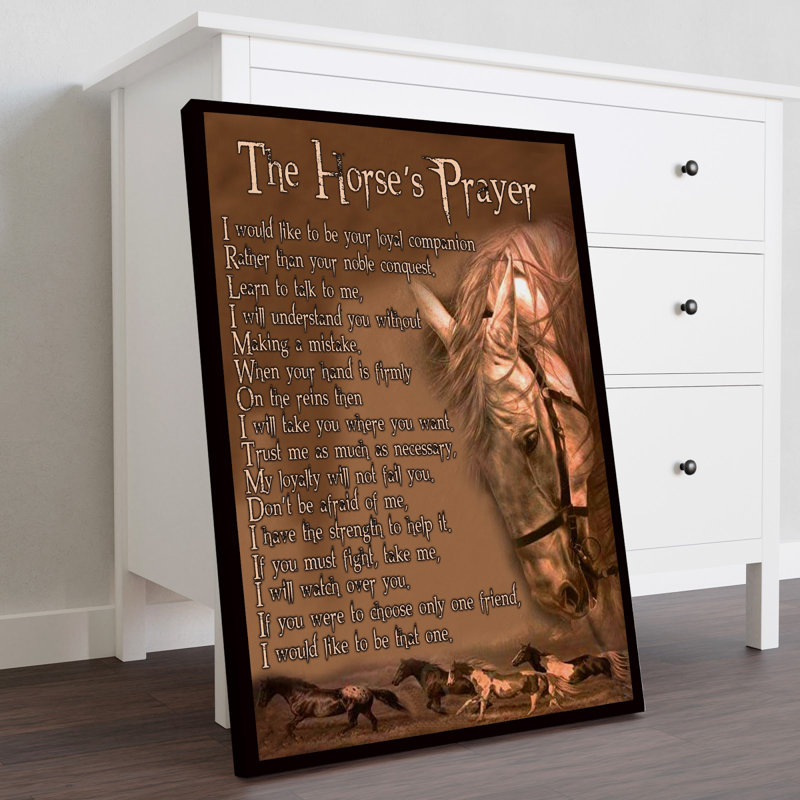 The Horse's Prayer
I would like to be your loyal companion
Rather than your noble conquest.
Learn to talk to me,
I will understand you without
Making a mistake.
When your hand is firmly
On the reins then
I will take you where you want.
Trust me as much as necessary,
My loyalty will not fail you.
Don't be afraid of me,
I have the strength to help it.
If you must fight, take me,
I will watch over you.
If you were to choose only one friend,
I would like to be that one.